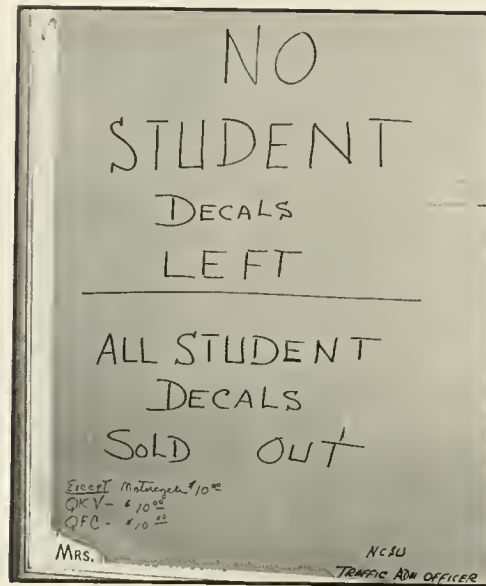 NO
STUDENT
DECALS
LEFT
ALL STUDENT
DECALS
SOLD OUT
Except Motorcycle $10.00
QKV - $10.00
QFC - $10.00
MRS.
NCSU
TRAFFIC ADM OFFICER